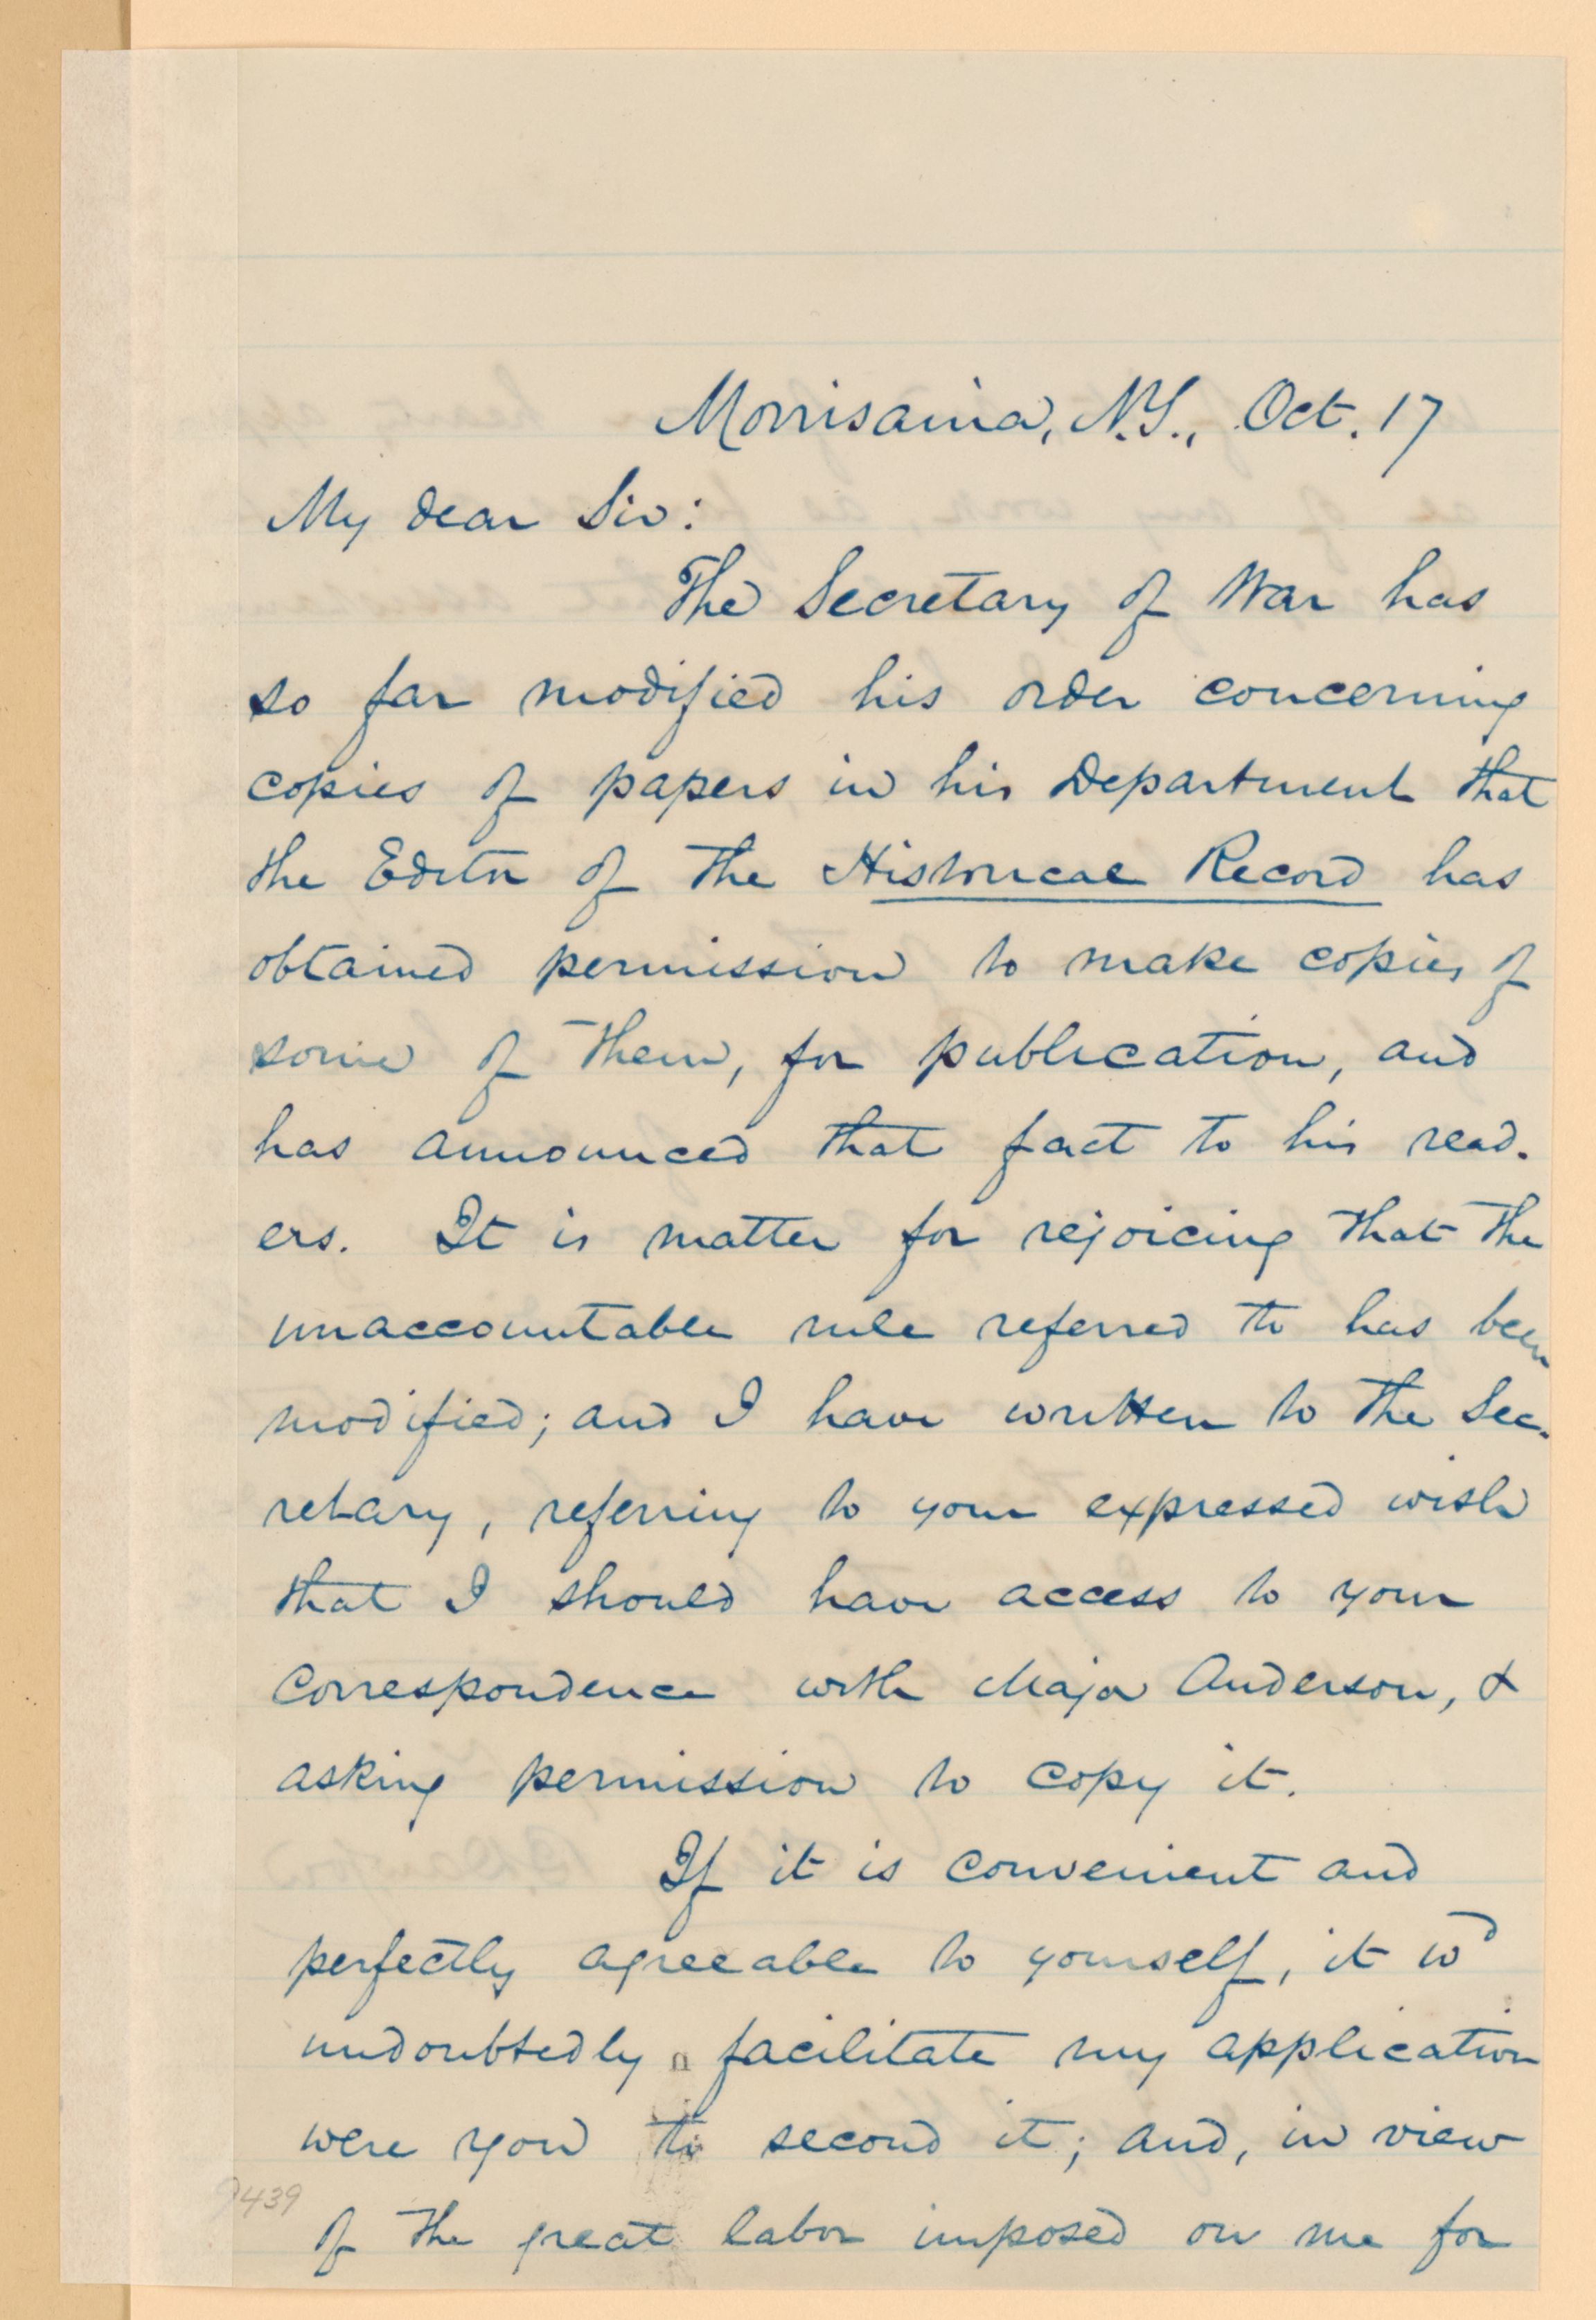 Morrisania, N.Y., Oct. 17
My dear Sir:
The Secretary of War has
so far modified his order concerning
copies of papers in his Department that
the Editor of the Historical Record has
obtained permission to make copies of
some of them, for publication, and
has announced that fact to his read-
ers. It is matter for rejoicing that the
unaccountable rule referred to has been
modified; and I have written to the Sec-
retary, referring to your expressed wish
that I should have access to your
correspondence with Major Anderson, &
asking permission to copy it.
If it is convenient and
perfectly agreeable to yourself, it wd
undoubtedly facilitate my application
were you to second it; and, in view
9439
of the great labor imposed on me for